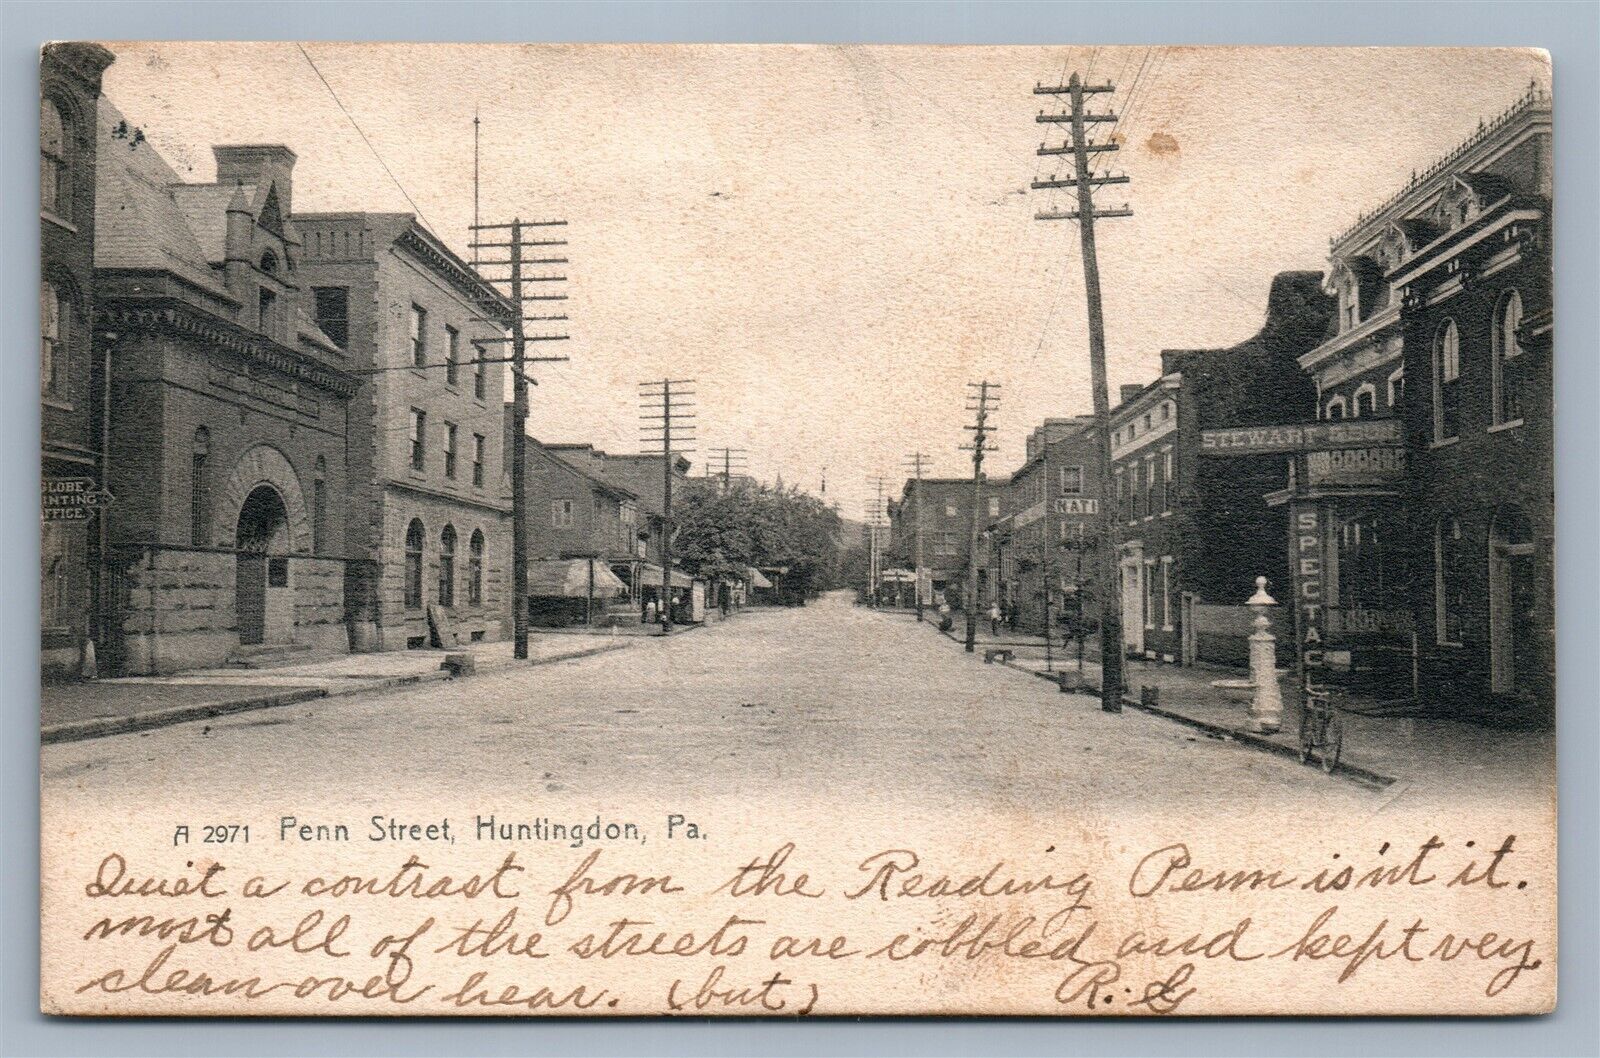 GLOBE
INTING
FFICE
STEWART
NATI
SPECTAC
A 2971 Penn Street, Huntingdon, Pa.
Quiet a contrast from the Reading Penn isn't it.
most all of the streets are cobbled and kept very
clean over hear. (but) R. G